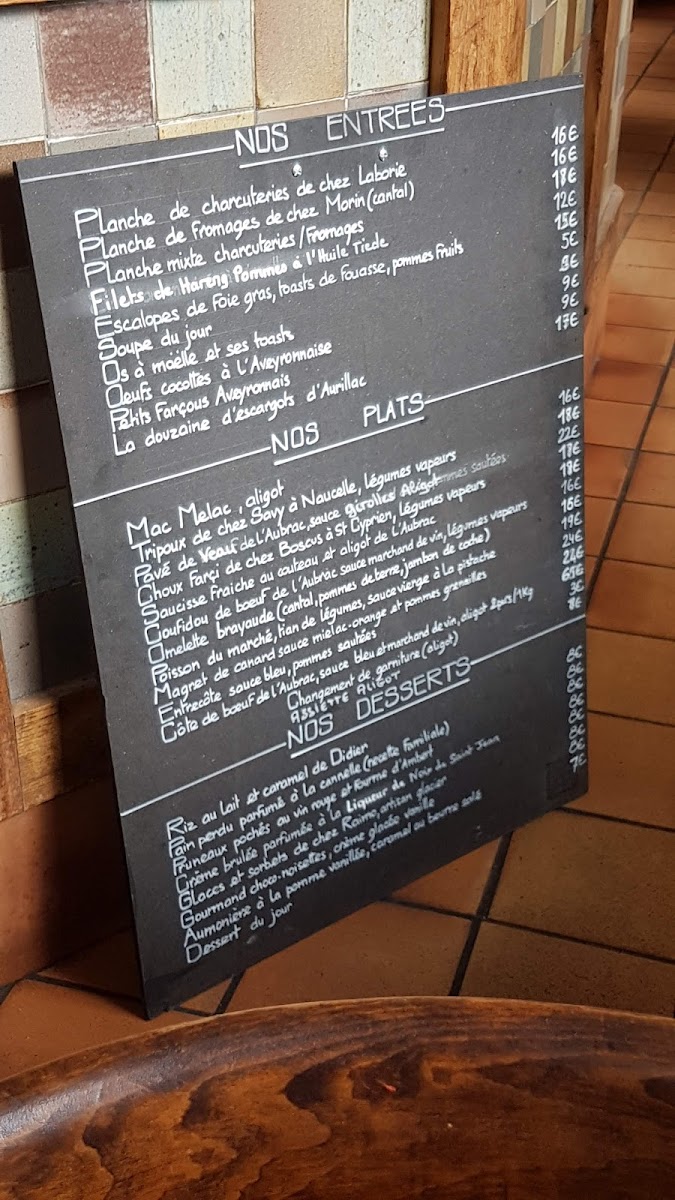 NOS ENTREES
Planche de charcuteries de chez Laborie 16€
Planche de fromages de chez Morin (cantal) 16€
Planche mixte charcuteries/fromages 18€
Filets de Hareng Pommes à l'Huile Tiede 12€
Escalopes de Foie gras, toasts de Fouasse, pommes fruits 15€
Soupe du jour 5€
Os à maëlle et ses toasts
Oeufs cocottes à l'Aveyronnaise 9€
Petits Farçous Aveyronnais 9€
La douzaine d'escargots d'Aurillac 17€
NOS PLATS
Mac Melac, aligot 16€
Tripoux de chez Savy à Naucelle, légumes vapeurs 18€
Pavé de Veau de l'Aubrac, sauce girolles Aligot pommes sautées 22€
Choux Farçi de chez Boscus à St Cyprien, légumes vapeurs 18€
Saucisse Fraiche au couteau et aligot de l'Aubrac 18€
Coufidou de bœuf de l'Aubrac sauce marchand de vin, légumes vapeurs 16€
Omelette brayaude (cantal, pommes de terre, jambon de coche) 16€
Poisson du marché, tian de légumes, sauce vierge à la pistache 19€
Magret de canard sauce miel-orange et pommes grenailles 24€
Entrecôte sauce bleu, pommes sautées 24€
Côte de bœuf de l'Aubrac, sauce bleu et marchand de vin, aligot 2prs/1Kg 68€
Changement de garniture (aligot) 3€
ASSIETTE ALIGOT 8€
NOS DESSERTS
Riz au lait et caramel de Didier 8€
Pain perdu parfumé à la cannelle (recette familiale) 8€
Pruneaux pochés au vin rouge et Fourme d'Ambert 8€
Crème brulée parfumée à la Liqueur de Noix de Saint Jean 8€
Glaces et sorbets de chez Raimo, artisan glacier 8€
Gourmand choco-noisettes, crème glacée vanille 8€
Aumonière à la pomme vanillée, caramel au beurre salé 8€
Dessert du jour 7€